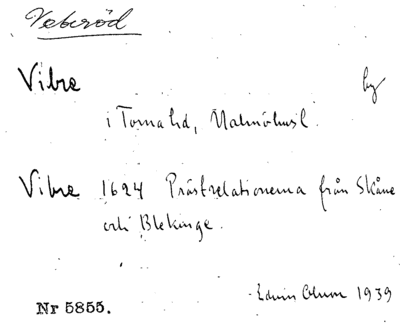 Veberöd
Vibre by
i Torna hd, Malmöhusl.
Vibre 1624 Prästrelationerna från Skåne
och Blekinge.
Edvin Olson 1939
Nr 5855.